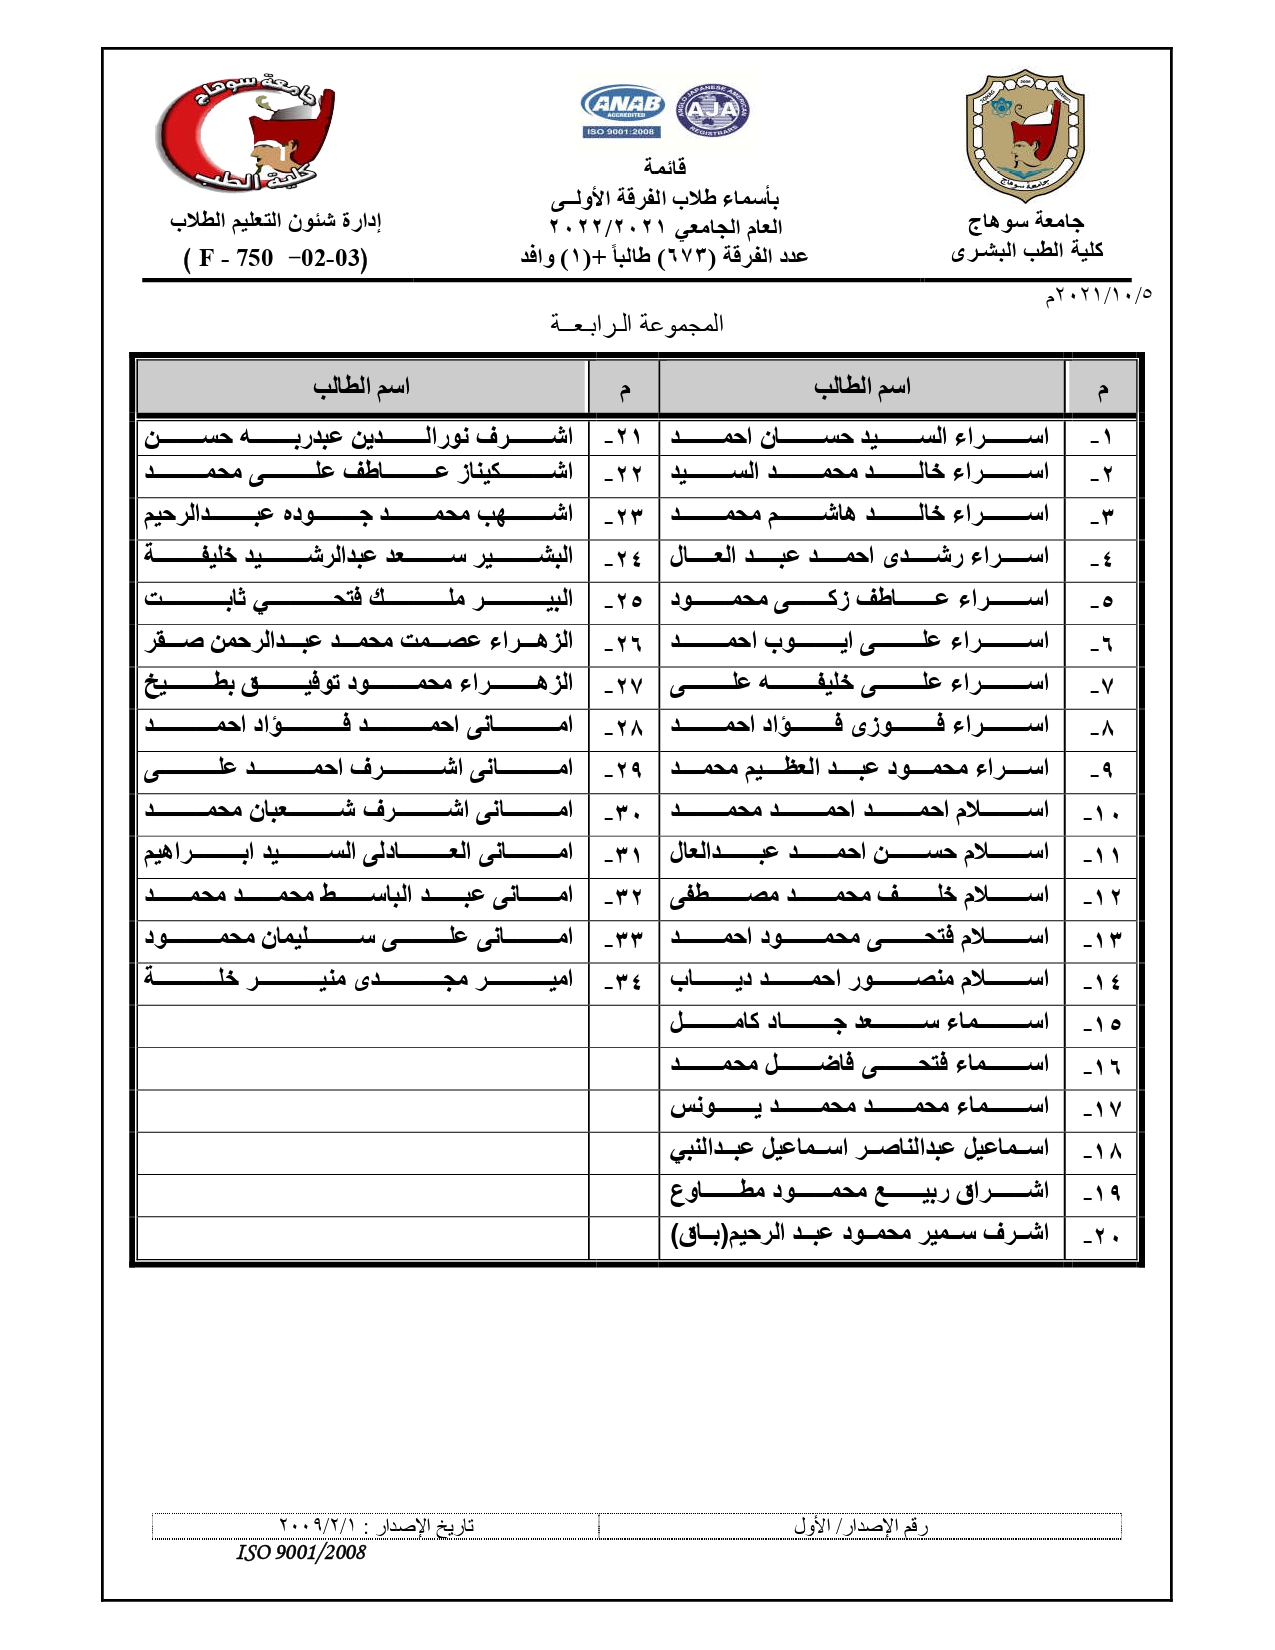 جامعة سوهاج
كلية الطب البشرى
ANAB
ACCREDITED
ISO 9001:2008
ANGLO JAPANESE AMERICAN
AJA
REGISTRARS
قائمة
بأسماء طلاب الفرقة الأولى
العام الجامعي ٢٠٢٢/٢٠٢١
عدد الفرقة (٦٧٣) طالباً +(١) وافد
جامعة سوهاج
كلية الطب
إدارة شئون التعليم الطلاب
( F - 750 -02-03)
٢٠٢١/١٠/٥م
المجموعة الرابعة
م اسم الطالب م اسم الطالب
١- اسراء السيد حسان احمد ٢١- اشرف نورالدين عبدربه حسن
٢- اسراء خالد محمد السيد ٢٢- اشكيناز عاطف على محمد
٣- اسراء خالد هاشم محمد ٢٣- اشهب محمد جوده عبدالرحيم
٤- اسراء رشدى احمد عبد العال ٢٤- البشير سعد عبدالرشيد خليفة
٥- اسراء عاطف زكى محمود ٢٥- البير ملك فتحي ثابت
٦- اسراء على ايوب احمد ٢٦- الزهراء عصمت محمد عبدالرحمن صقر
٧- اسراء على خليفه على ٢٧- الزهراء محمود توفيق بطيخ
٨- اسراء فوزى فؤاد احمد ٢٨- امانى احمد فؤاد احمد
٩- اسراء محمود عبد العظيم محمد ٢٩- امانى اشرف احمد على
١٠- اسلام احمد احمد محمد ٣٠- امانى اشرف شعبان محمد
١١- اسلام حسن احمد عبدالعال ٣١- امانى العادلى السيد ابراهيم
١٢- اسلام خلف محمد مصطفى ٣٢- امانى عبد الباسط محمد محمد
١٣- اسلام فتحى محمود احمد ٣٣- امانى على سليمان محمود
١٤- اسلام منصور احمد دياب ٣٤- امير مجدى منير خلة
١٥- اسماء سعد جاد كامل
١٦- اسماء فتحى فاضل محمد
١٧- اسماء محمد محمد يونس
١٨- اسماعيل عبدالناصر اسماعيل عبدالنبي
١٩- اشراق ربيع محمود مطاوع
٢٠- اشرف سمير محمود عبد الرحيم(باق)
رقم الإصدار/ الأول تاريخ الإصدار : ٢٠٠٩/٢/١
ISO 9001/2008